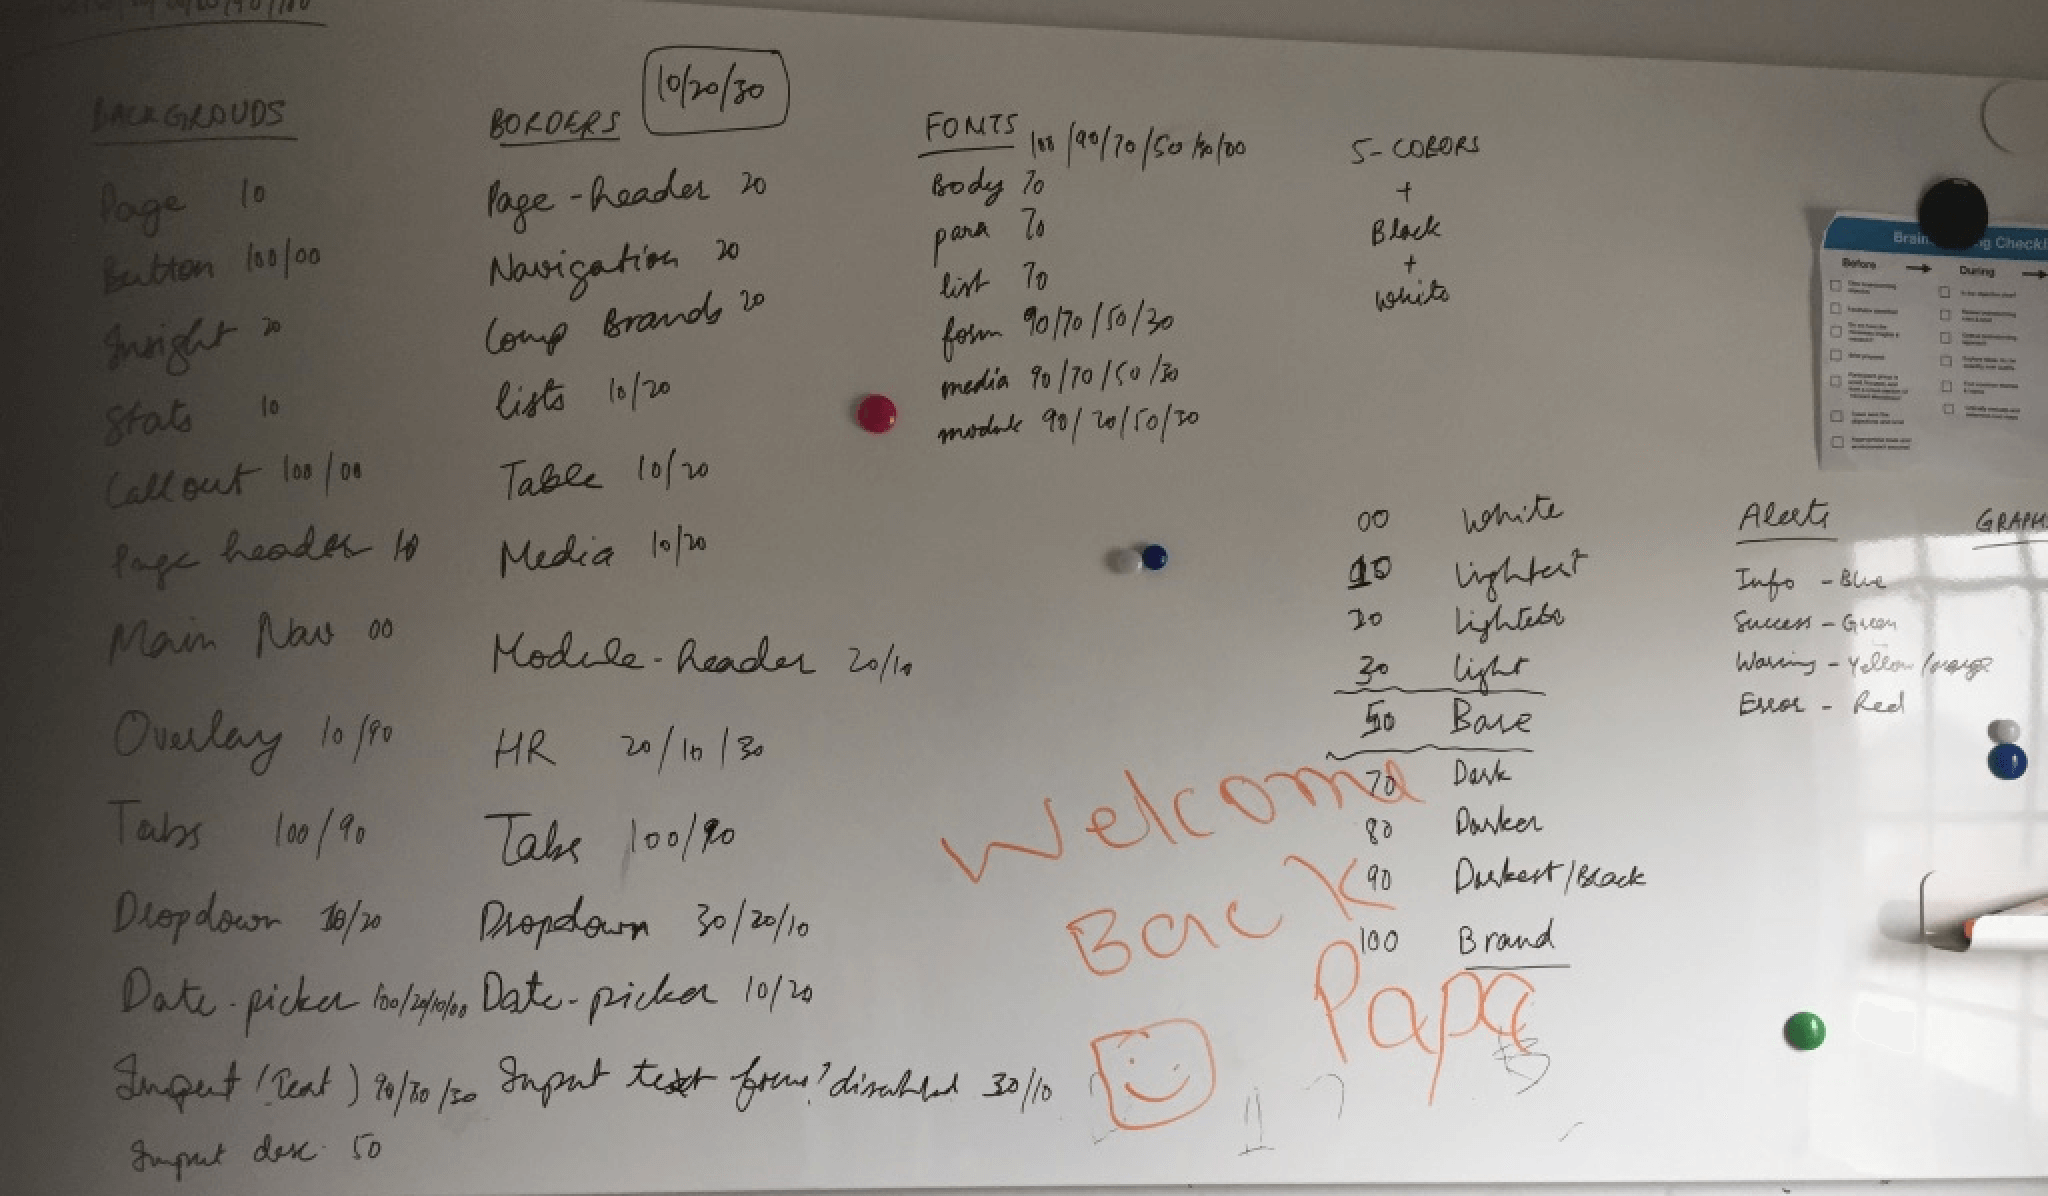 BACKGROUDS
Page 10
Button 100/00
Insight 20
Stats 10
Callout 100/00
Page header 10
Main Nav 00
Overlay 10/90
Tabs 100/90
Dropdown 10/20
Date-picker 100/20/10/00
Input (Text) 90/80/30
Input desc. 50
BORDERS
10/20/30
Page-header 20
Navigation 20
Comp Brands 20
Lists 10/20
Table 10/20
Media 10/20
Module-header 20/10
HR 20/10/30
Tabs 100/90
Dropdown 30/20/10
Date-picker 10/20
Input text focus? disabled 30/10
FONTS
100/90/70/50/30/00
Body 70
para 70
list 70
form 90/70/50/30
media 90/70/50/30
module 90/70/50/30
5-COLORS
+
Black
+
White
00 White
10 Lightest
20 Lighter
30 Light
50 Base
70 Dark
80 Darker
90 Darkest/Black
100 Brand
Alerts
Info - Blue
Success - Green
Warning - Yellow/orange
Error - Red
GRAPH
Welcome
Back
Papa
Checkli
Before
During